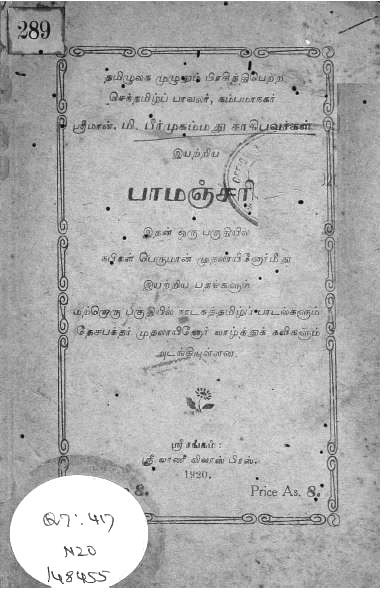 289
தமிழுலக முழுதும் பிரசித்திபெற்ற
செந்தமிழ்ப் பாவலர், கம்பமாநகர்
ஸ்ரீமான். பி. பீர்முகம்மது சாகிபவர்கள்
இயற்றிய
பாமஞ்சரி
இதன் ஒரு பகுதியில்
நபிகள் பெருமான் முதலாயினோர்மீது
இயற்றிய பதங்களும்
மற்றொரு பகுதியில் நாடகத்தமிழ்ப் பாடல்களும்
தேசபக்தர் முதலாயினோர் வாழ்த்துக் கவிகளும்
அடங்கியுள்ளன.
ஸ்ரீரங்கம் :
ஸ்ரீ வாணீ விலாஸ் பிரஸ்.
1920.
8. Price As. 8.
417
N20
148455